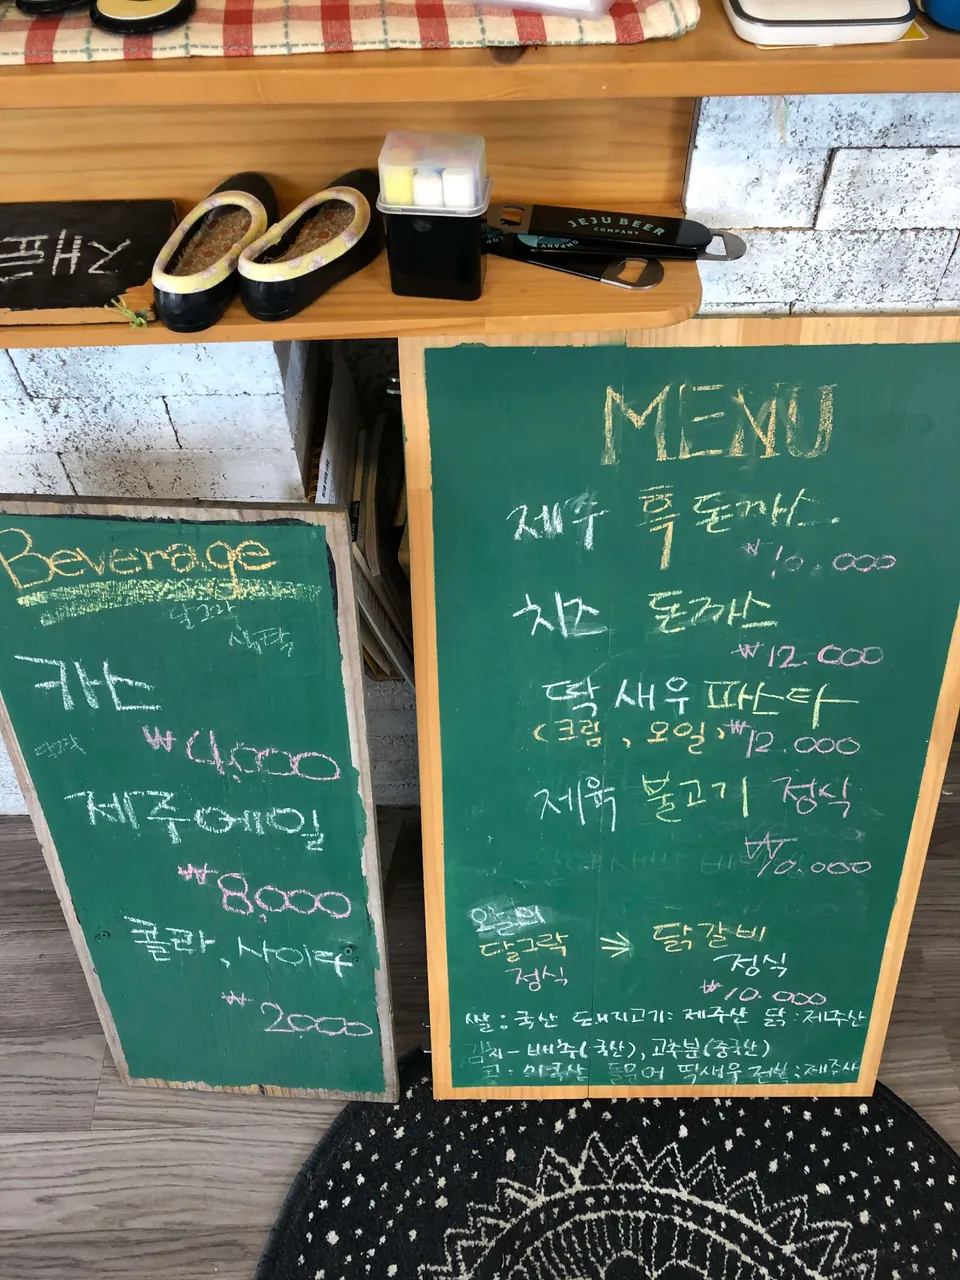 JEJU BEER
COMPANY
MENU
제주 흑돈까스
₩10.000
치즈 돈까스
₩12.000
딱새우 파스타
(크림, 오일) ₩12.000
제육 불고기 정식
₩10.000
오늘의
달그락 → 닭갈비
정식 정식
₩10.000
쌀:국산 돼지고기:제주산 닭:제주산
김치-배추(국산), 고추분(중국산)
콩:미국산 돌문어 딱새우 전복:제주산
Beverage
달그락
식탁
카스
₩4,000
제주에일
₩8,000
콜라, 사이다
₩2000